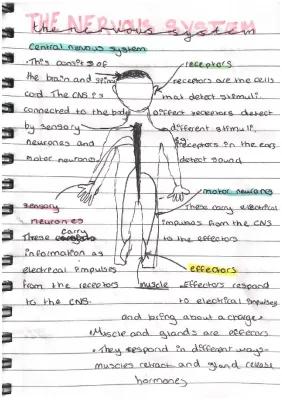 THE NERVOUS SYSTEM
the nervous system
central nervous system
• This consits of
the brain and spinal
cord. The CNS is
connected to the body
by sensory
neurones and
motor neurons
receptors
receptors are the cells
that detect stimuli.
Diffect receptors detect
different stimuli,
receptors in the ears
detect sound
motor neurons
These carry electrical
impulses from the CNS
to the effectors
sensory
neurones
These carry
information as
electrical impulses
from the receptors
to the CNS.
effectors
muscle
effectors respond
to electrical impulses
and bring about a change
• Muscle and glands are effectors
• They respond in different ways-
muscles retract and gland release
hormones